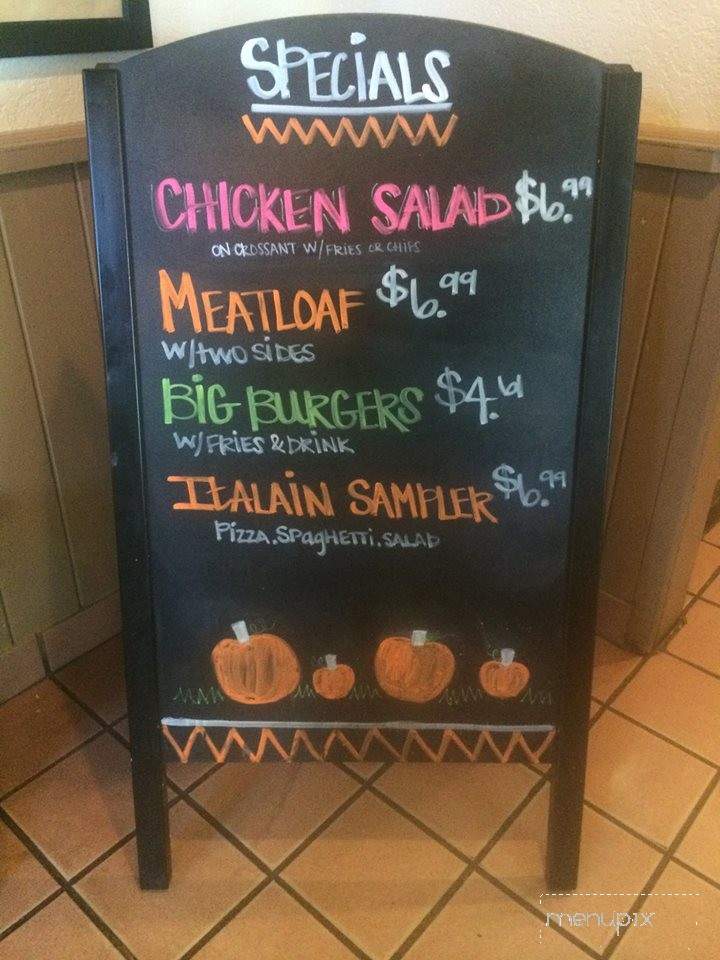 SPECiALS
CHICKEN SALAD $6.99
ON CROSSANT W/FRIES OR CHIPS
MEATLOAF $6.99
W/TWO SIDES
BIG BURGERS $4.61
W/FRIES & DRINK
ITALAIN SAMPLER $6.99
PIZZA. SPAGHETTI. SALAD
menupix